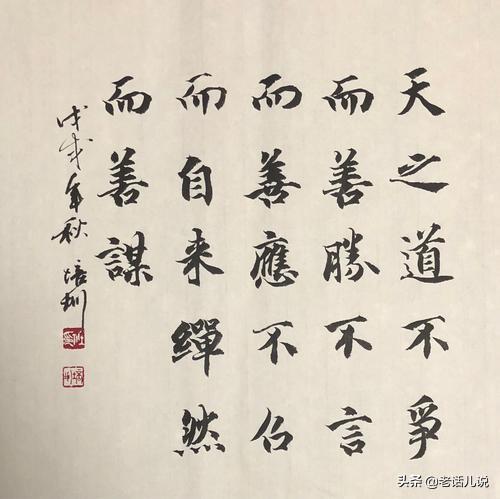 天之道不爭
而善勝不言
而善應不召
而自来繟然
而善謀
戊戌年秋 培圳
头条 @老话儿说